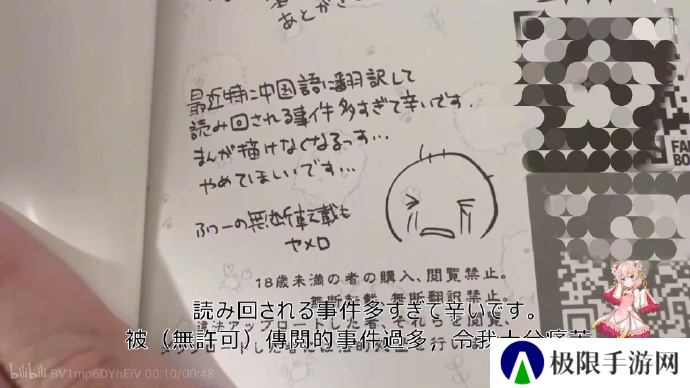 あとがき
最近特に中国語に翻訳して
読み回される事件多すぎて辛いです.
まんが描けなくなるっす…
やめてほしいです…
ふつーの無断転載も
ヤメロ
18歳未満の者の購入、閲覧禁止。
無断転載、無断翻訳禁止。
読み回される事件多すぎて辛いです。
被（無許可）傳閲的事件過多，令我十分痛苦
FAN
BO
bilibili BV1mp6DYhEiV 00:10/00:48
极限手游网